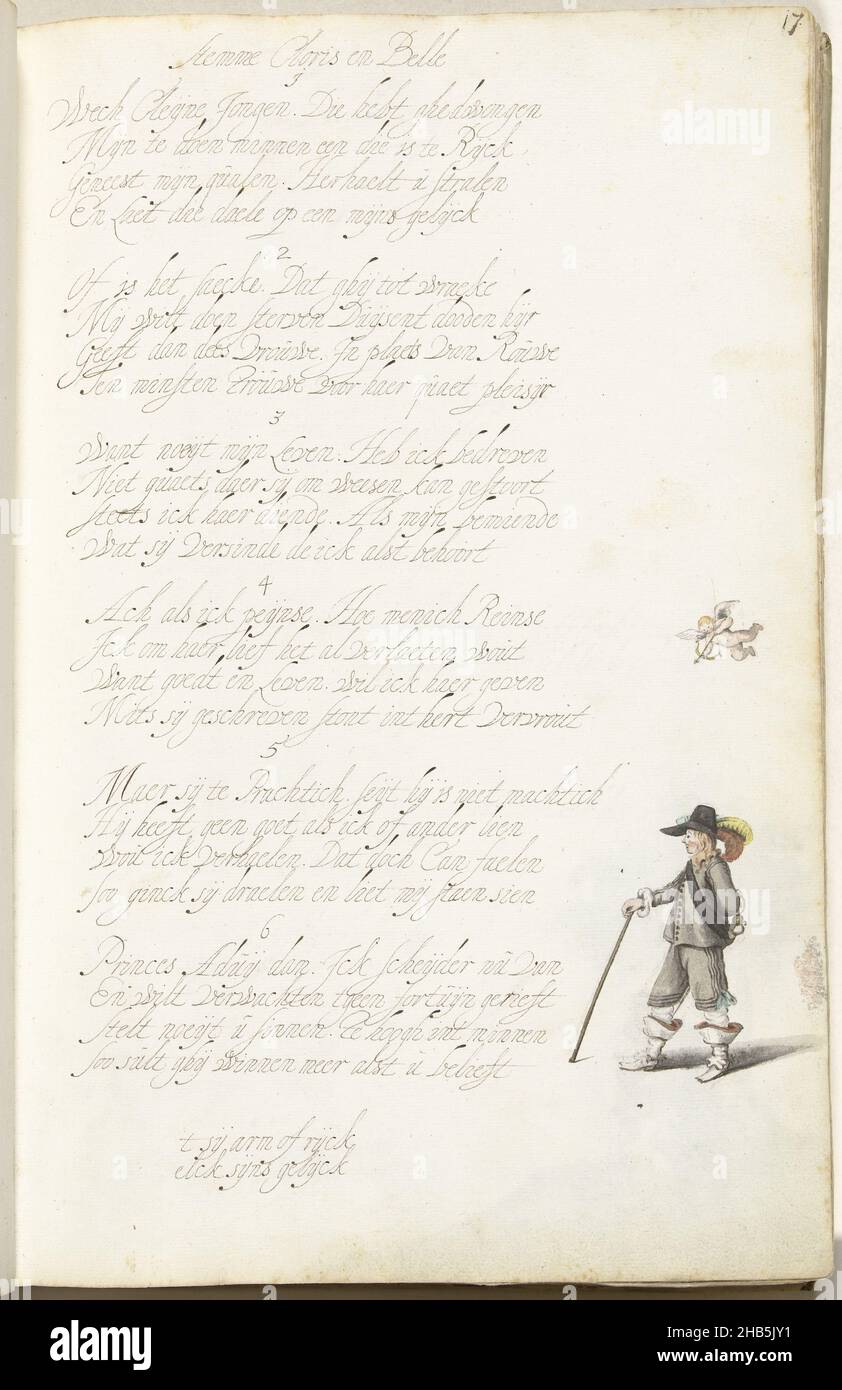 17
stemme Cloris en Belle
1
Wech Cleijne Jongen. Die hebt ghedwongen
Mijn te doen minnen een die is te Rijck
Geneest mijn qualen. Herhaelt ú stralen
En Laet die daele op een mijns gelijck
2
Of is het saecke. Dat ghij tot wraecke
Mij wilt doen sterven Duijsent dooden hijr
Geeft dan dees Vroúwe. In plaets van Roúwe
Ten minsten troúwe voor haer quaet pleisijr
3
Want noeijt mijn Leven. Heb ick bedreven
Niet quaets daer sij om weesen kan gestoort
steets ick haer diende. Als mijn beminde
Wat sij versinde de ick alst behoort
4
Ach als ick peijnse. Hoe menich Reinse
Ick om haer lief het al verlaeten woút
Want goedt en Leven. wil ick haer geven
Mits sij geschreven stont int hert vervroút
5
Maer sij te Prachtich. seijt hij is niet machtich
Hij heeft geen goet als ick of ander lien
Woú ick verhaelen. Dat doch Can faelen
soo ginck sij draelen en liet mij staen sien
6
Princes Adúij dan. Ick scheijder nú van
En wilt verwachten tgeen fortúijn gerieft
stelt noeijt ú sinnen. Te hoogh int minnen
soo súlt ghij winnen meer alst ú belieft
t sij arm of rijck
elck sijns gelijck
alamy
Image ID: 2HB5JY1
www.alamy.com